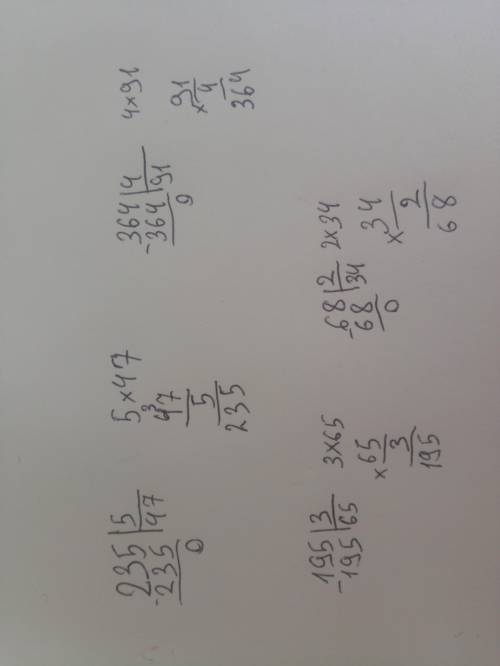 235 | 5
-235 | 47
0
5 × 47
3
47
5
235
364 | 4
-364 | 91
0
4 × 91
91
× 4
364
195 | 3
-195 | 65
3 × 65
65
× 3
195
68 | 2
-68 | 34
0
2 × 34
34
× 2
68